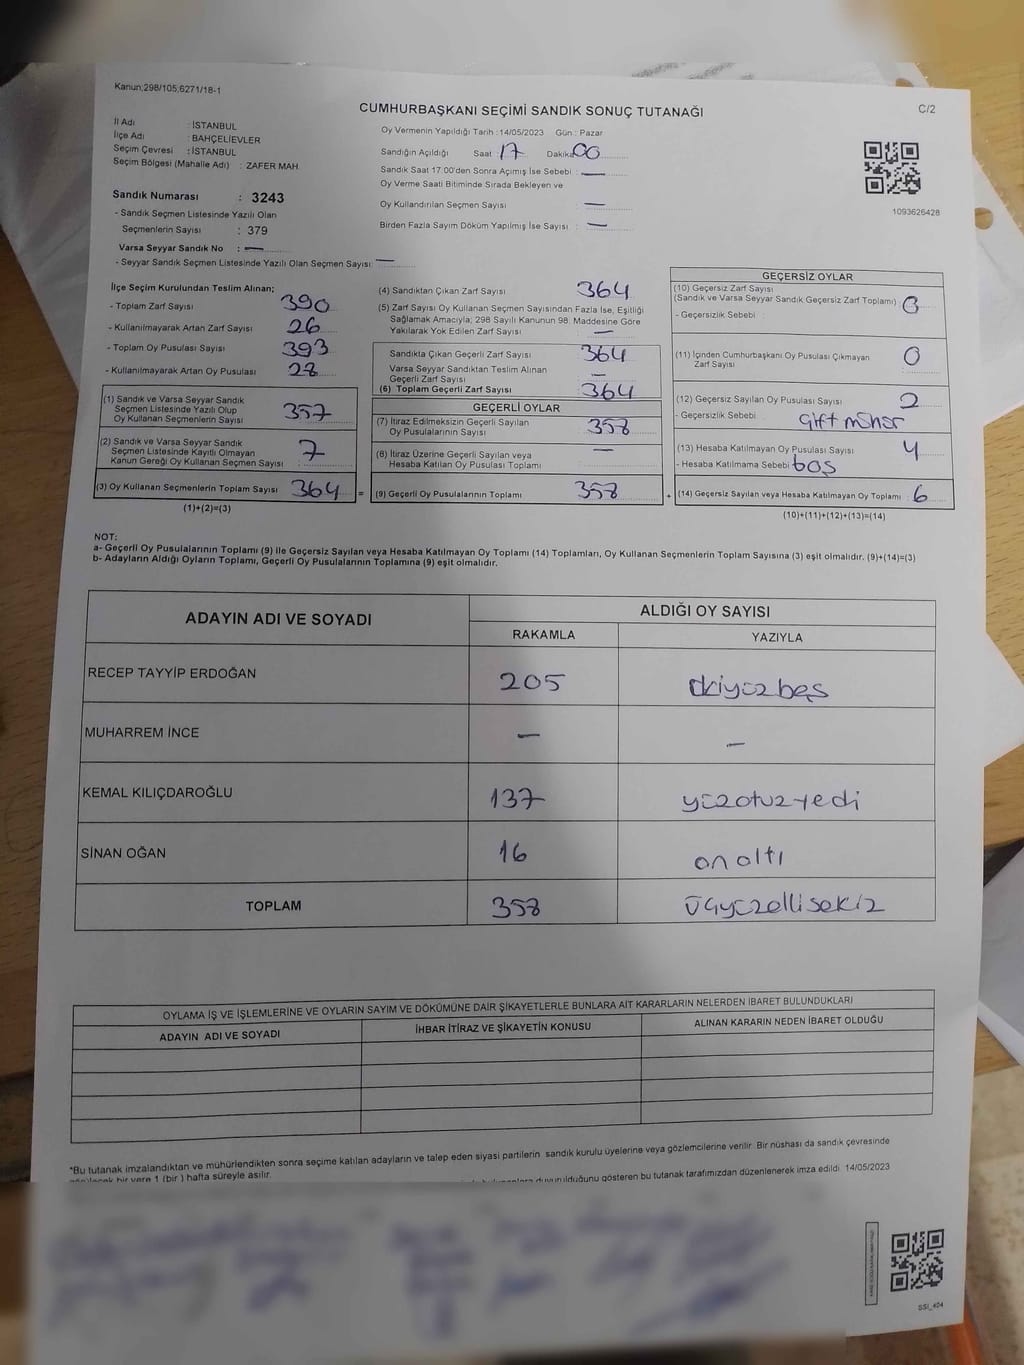 Kanun;298/105;6271/18-1
C/2
CUMHURBAŞKANI SEÇİMİ SANDIK SONUÇ TUTANAĞI
İl Adı : İSTANBUL
İlçe Adı : BAHÇELİEVLER
Seçim Çevresi : İSTANBUL
Seçim Bölgesi (Mahalle Adı) : ZAFER MAH.
Sandık Numarası : 3243
- Sandık Seçmen Listesinde Yazılı Olan
Seçmenlerin Sayısı : 379
Varsa Seyyar Sandık No : —
- Seyyar Sandık Seçmen Listesinde Yazılı Olan Seçmen Sayısı: —
Oy Vermenin Yapıldığı Tarih : 14/05/2023 Gün : Pazar
Sandığın Açıldığı Saat : 17 Dakika 00
Sandık Saat 17:00'den Sonra Açımış İse Sebebi : —
Oy Verme Saati Bitiminde Sırada Bekleyen ve
Oy Kullandırılan Seçmen Sayısı : —
Birden Fazla Sayım Döküm Yapılmış İse Sayısı : —
1093626428
İlçe Seçim Kurulundan Teslim Alınan;
- Toplam Zarf Sayısı 390
- Kullanılmayarak Artan Zarf Sayısı 26
- Toplam Oy Pusulası Sayısı 393
- Kullanılmayarak Artan Oy Pusulası 28
(1) Sandık ve Varsa Seyyar Sandık
Seçmen Listesinde Yazılı Olup
Oy Kullanan Seçmenlerin Sayısı 357
(2) Sandık ve Varsa Seyyar Sandık
Seçmen Listesinde Kayıtlı Olmayan
Kanun Gereği Oy Kullanan Seçmen Sayısı : 7
(3) Oy Kullanan Seçmenlerin Toplam Sayısı 364 =
(1)+(2)=(3)
(4) Sandıktan Çıkan Zarf Sayısı 364
(5) Zarf Sayısı Oy Kullanan Seçmen Sayısından Fazla İse, Eşitliği
Sağlamak Amacıyla; 298 Sayılı Kanunun 98. Maddesine Göre
Yakılarak Yok Edilen Zarf Sayısı —
Sandıkta Çıkan Geçerli Zarf Sayısı 364
Varsa Seyyar Sandıktan Teslim Alınan
Geçerli Zarf Sayısı —
(6) Toplam Geçerli Zarf Sayısı 364
GEÇERLİ OYLAR
(7) İtiraz Edilmeksizin Geçerli Sayılan
Oy Pusulalarının Sayısı 358
(8) İtiraz Üzerine Geçerli Sayılan veya
Hesaba Katılan Oy Pusulası Toplamı —
(9) Geçerli Oy Pusulalarının Toplamı 358 +
GEÇERSİZ OYLAR
(10) Geçersiz Zarf Sayısı
(Sandık ve Varsa Seyyar Sandık Geçersiz Zarf Toplamı) : 0
- Geçersizlik Sebebi :
(11) İçinden Cumhurbaşkanı Oy Pusulası Çıkmayan
Zarf Sayısı 0
(12) Geçersiz Sayılan Oy Pusulası Sayısı 2
- Geçersizlik Sebebi : Çift mühür
(13) Hesaba Katılmayan Oy Pusulası Sayısı 4
- Hesaba Katılmama Sebebi boş
(14) Geçersiz Sayılan veya Hesaba Katılmayan Oy Toplamı : 6
(10)+(11)+(12)+(13)=(14)
NOT:
a- Geçerli Oy Pusulalarının Toplamı (9) ile Geçersiz Sayılan veya Hesaba Katılmayan Oy Toplamı (14) Toplamları, Oy Kullanan Seçmenlerin Toplam Sayısına (3) eşit olmalıdır. (9)+(14)=(3)
b- Adayların Aldığı Oyların Toplamı, Geçerli Oy Pusulalarının Toplamına (9) eşit olmalıdır.
ADAYIN ADI VE SOYADI ALDIĞI OY SAYISI
RAKAMLA YAZIYLA
RECEP TAYYİP ERDOĞAN 205 ikiyüzbeş
MUHARREM İNCE — —
KEMAL KILIÇDAROĞLU 137 yüzotuzyedi
SİNAN OĞAN 16 on altı
TOPLAM 358 üçyüzellisekiz
OYLAMA İŞ VE İŞLEMLERİNE VE OYLARIN SAYIM VE DÖKÜMÜNE DAİR ŞİKAYETLERLE BUNLARA AİT KARARLARIN NELERDEN İBARET BULUNDUKLARI
ADAYIN ADI VE SOYADI İHBAR İTİRAZ VE ŞİKAYETİN KONUSU ALINAN KARARIN NEDEN İBARET OLDUĞU
*Bu tutanak imzalandıktan ve mühürlendikten sonra seçime katılan adayların ve talep eden siyasi partilerin sandık kurulu üyelerine veya gözlemcilerine verilir. Bir nüshası da sandık çevresinde
bir yere 1 (bir ) hafta süreyle asılır. duyurulduğunu gösteren bu tutanak tarafımızdan düzenlenerek imza edildi. 14/05/2023
SSI_404